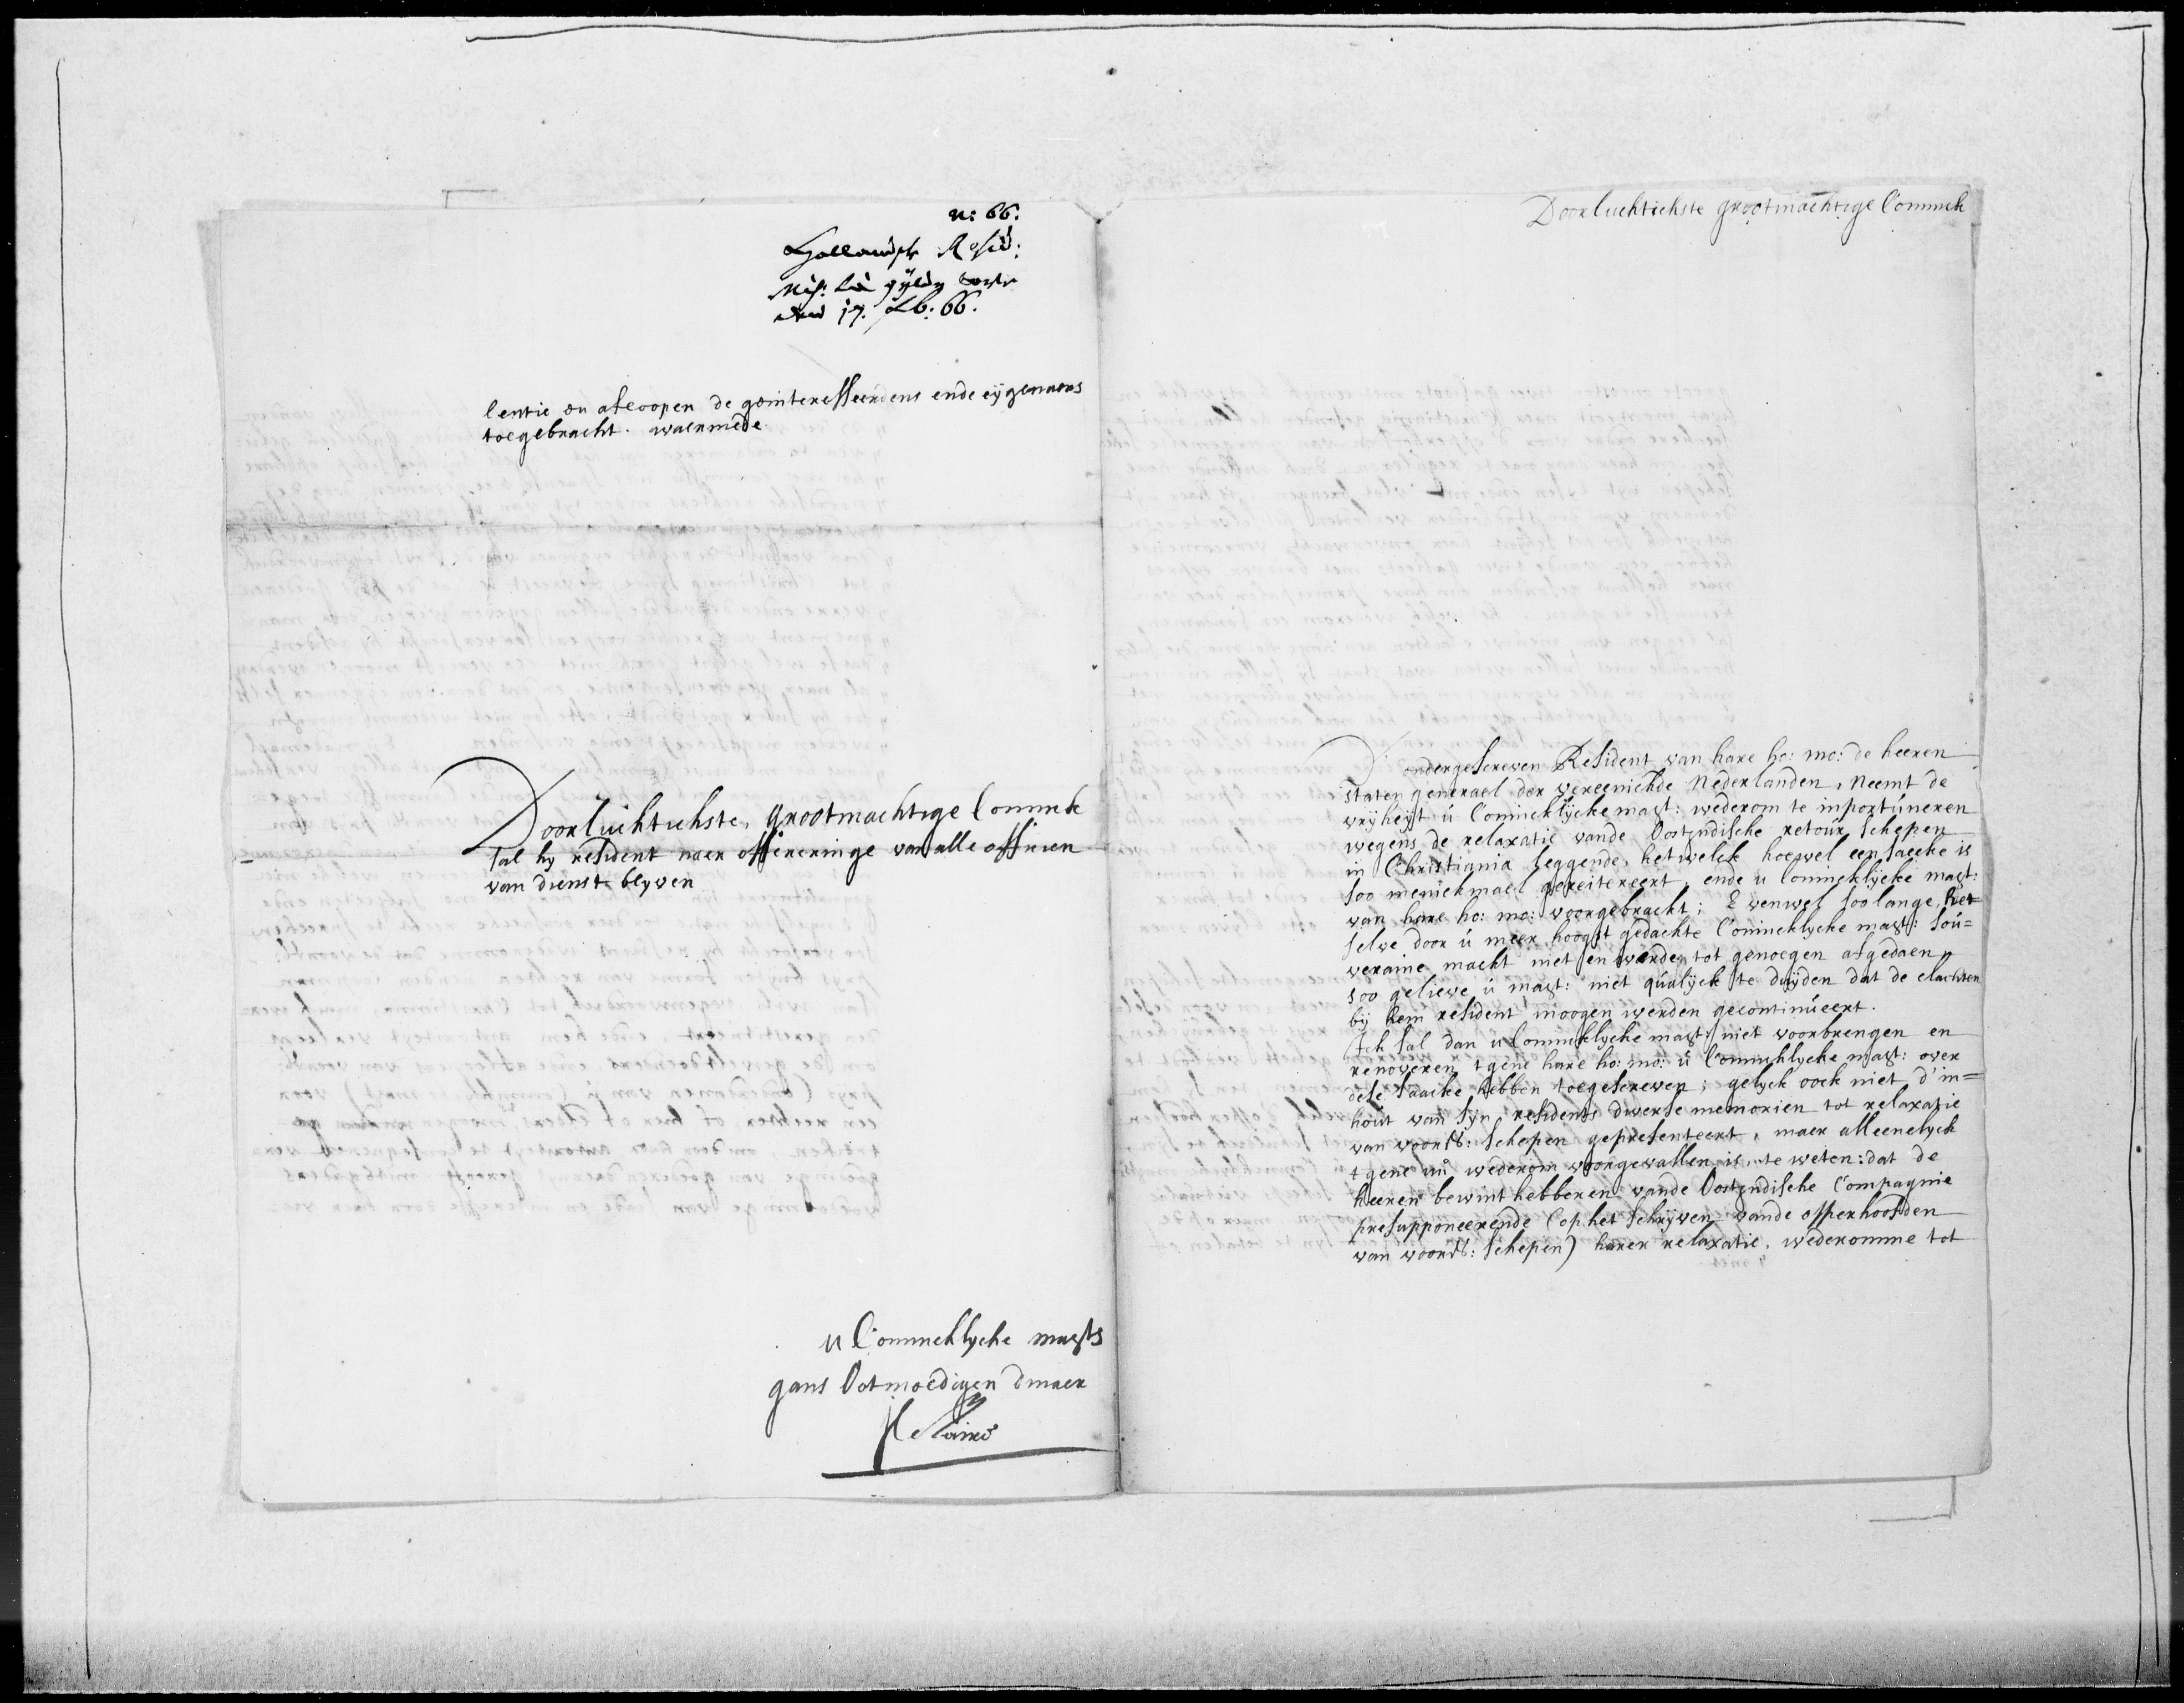 n: 66.
Hollandsk Resid:
den 17. Feb: 66.
lentie en afloopen de geinteresseerdens ende eygenaers
toegebracht. waermede
Doorluchtichste, grootmachtige Coninck
sal hy resident naer offereringe van alle officien
van dienst blyven
u Conincklycke mayts
gans Ootmoedigen dinaer
Doorluchtichste grootmachtige Coninck
D' ondergescreven Resident van hare ho: mo: de heeren
staten generael der vereenichde Nederlanden, Neemt de
vryheyt u Conincklycke mayt: wederom te inportuneren
wegens de relaxatie vande Oostyndische retour schepen
in Christiania leggende, hetwelck hoewel een saecke is
soo menichmael gereitereert, ende u Conincklycke mayt:
van hare ho: mo: voorgebracht; Evenwel soo lange het=
selve door u meer hoogst gedachte Conincklycke mayt: sou=
veraine macht niet en werden tot genoegen afgedaen
soo gelieve u mayt: niet qualyck te duyden dat de clachten
by hem resident moogen werden gecontinueert.
Ick sal dan u Conincklycke mayt: niet voorbrengen en
renoveren tgene hare ho: mo: u Conincklycke mayt: over
dese saacke hebben toegescreven; gelyck oock niet d'in=
hout van syn residents diverse memorien tot relaxatie
van voors: schepen gepresenteert, maer alleenelyck
tgene nu wederom voorgevallen is, te weten: dat de
heeren bewinthebberen vande Oostyndische Compagnie
presupponeerende (op het schryven vande opperhoofden
van voors: schepen) harer relaxatie, wederomme tot